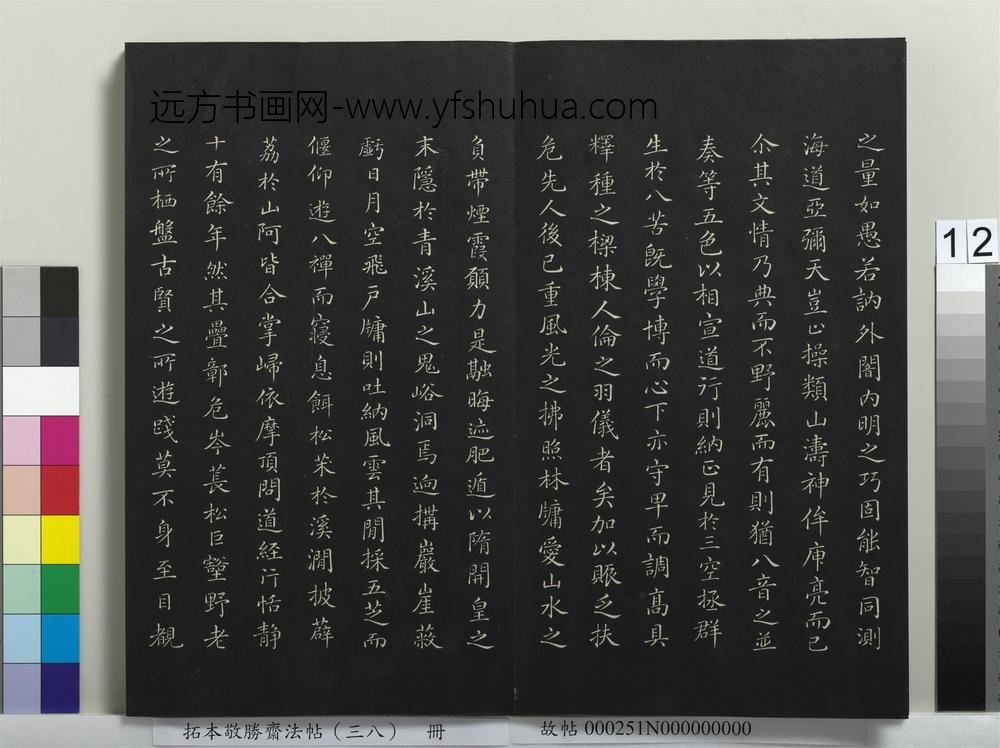 远方书画网-www.yfshuhua.com
之量如愚若訥外闇內明之巧固能智同測
海道亞彌天豈止操類山濤神侔庾亮而已
尒其文情乃典而不野麗而有則猶八音之並
奏等五色以相宣道行則納正見於三空拯群
生於八苦既學博而心下亦守卑而調高具
釋種之樑棟人倫之羽儀者矣加以賑乏扶
危先人後己重風光之拂照林牖愛山水之
負帶煙霞願力是融晦迹肥遁以隋開皇之
末隱於青溪山之鬼峪洞焉迥構巖崖蔽
虧日月空飛戶牖則吐納風雲其閒採五芝而
偃仰遊八禪而寢息餌松茱於溪澗披薜
荔於山阿皆合掌歸依摩頂問道經行恬靜
十有餘年然其疊鄣危岑萇松巨壑野老
之所栖盤古賢之所遊踐莫不身至目覩
12
拓本敬勝齋法帖（三八） 冊
故帖 000251N000000000